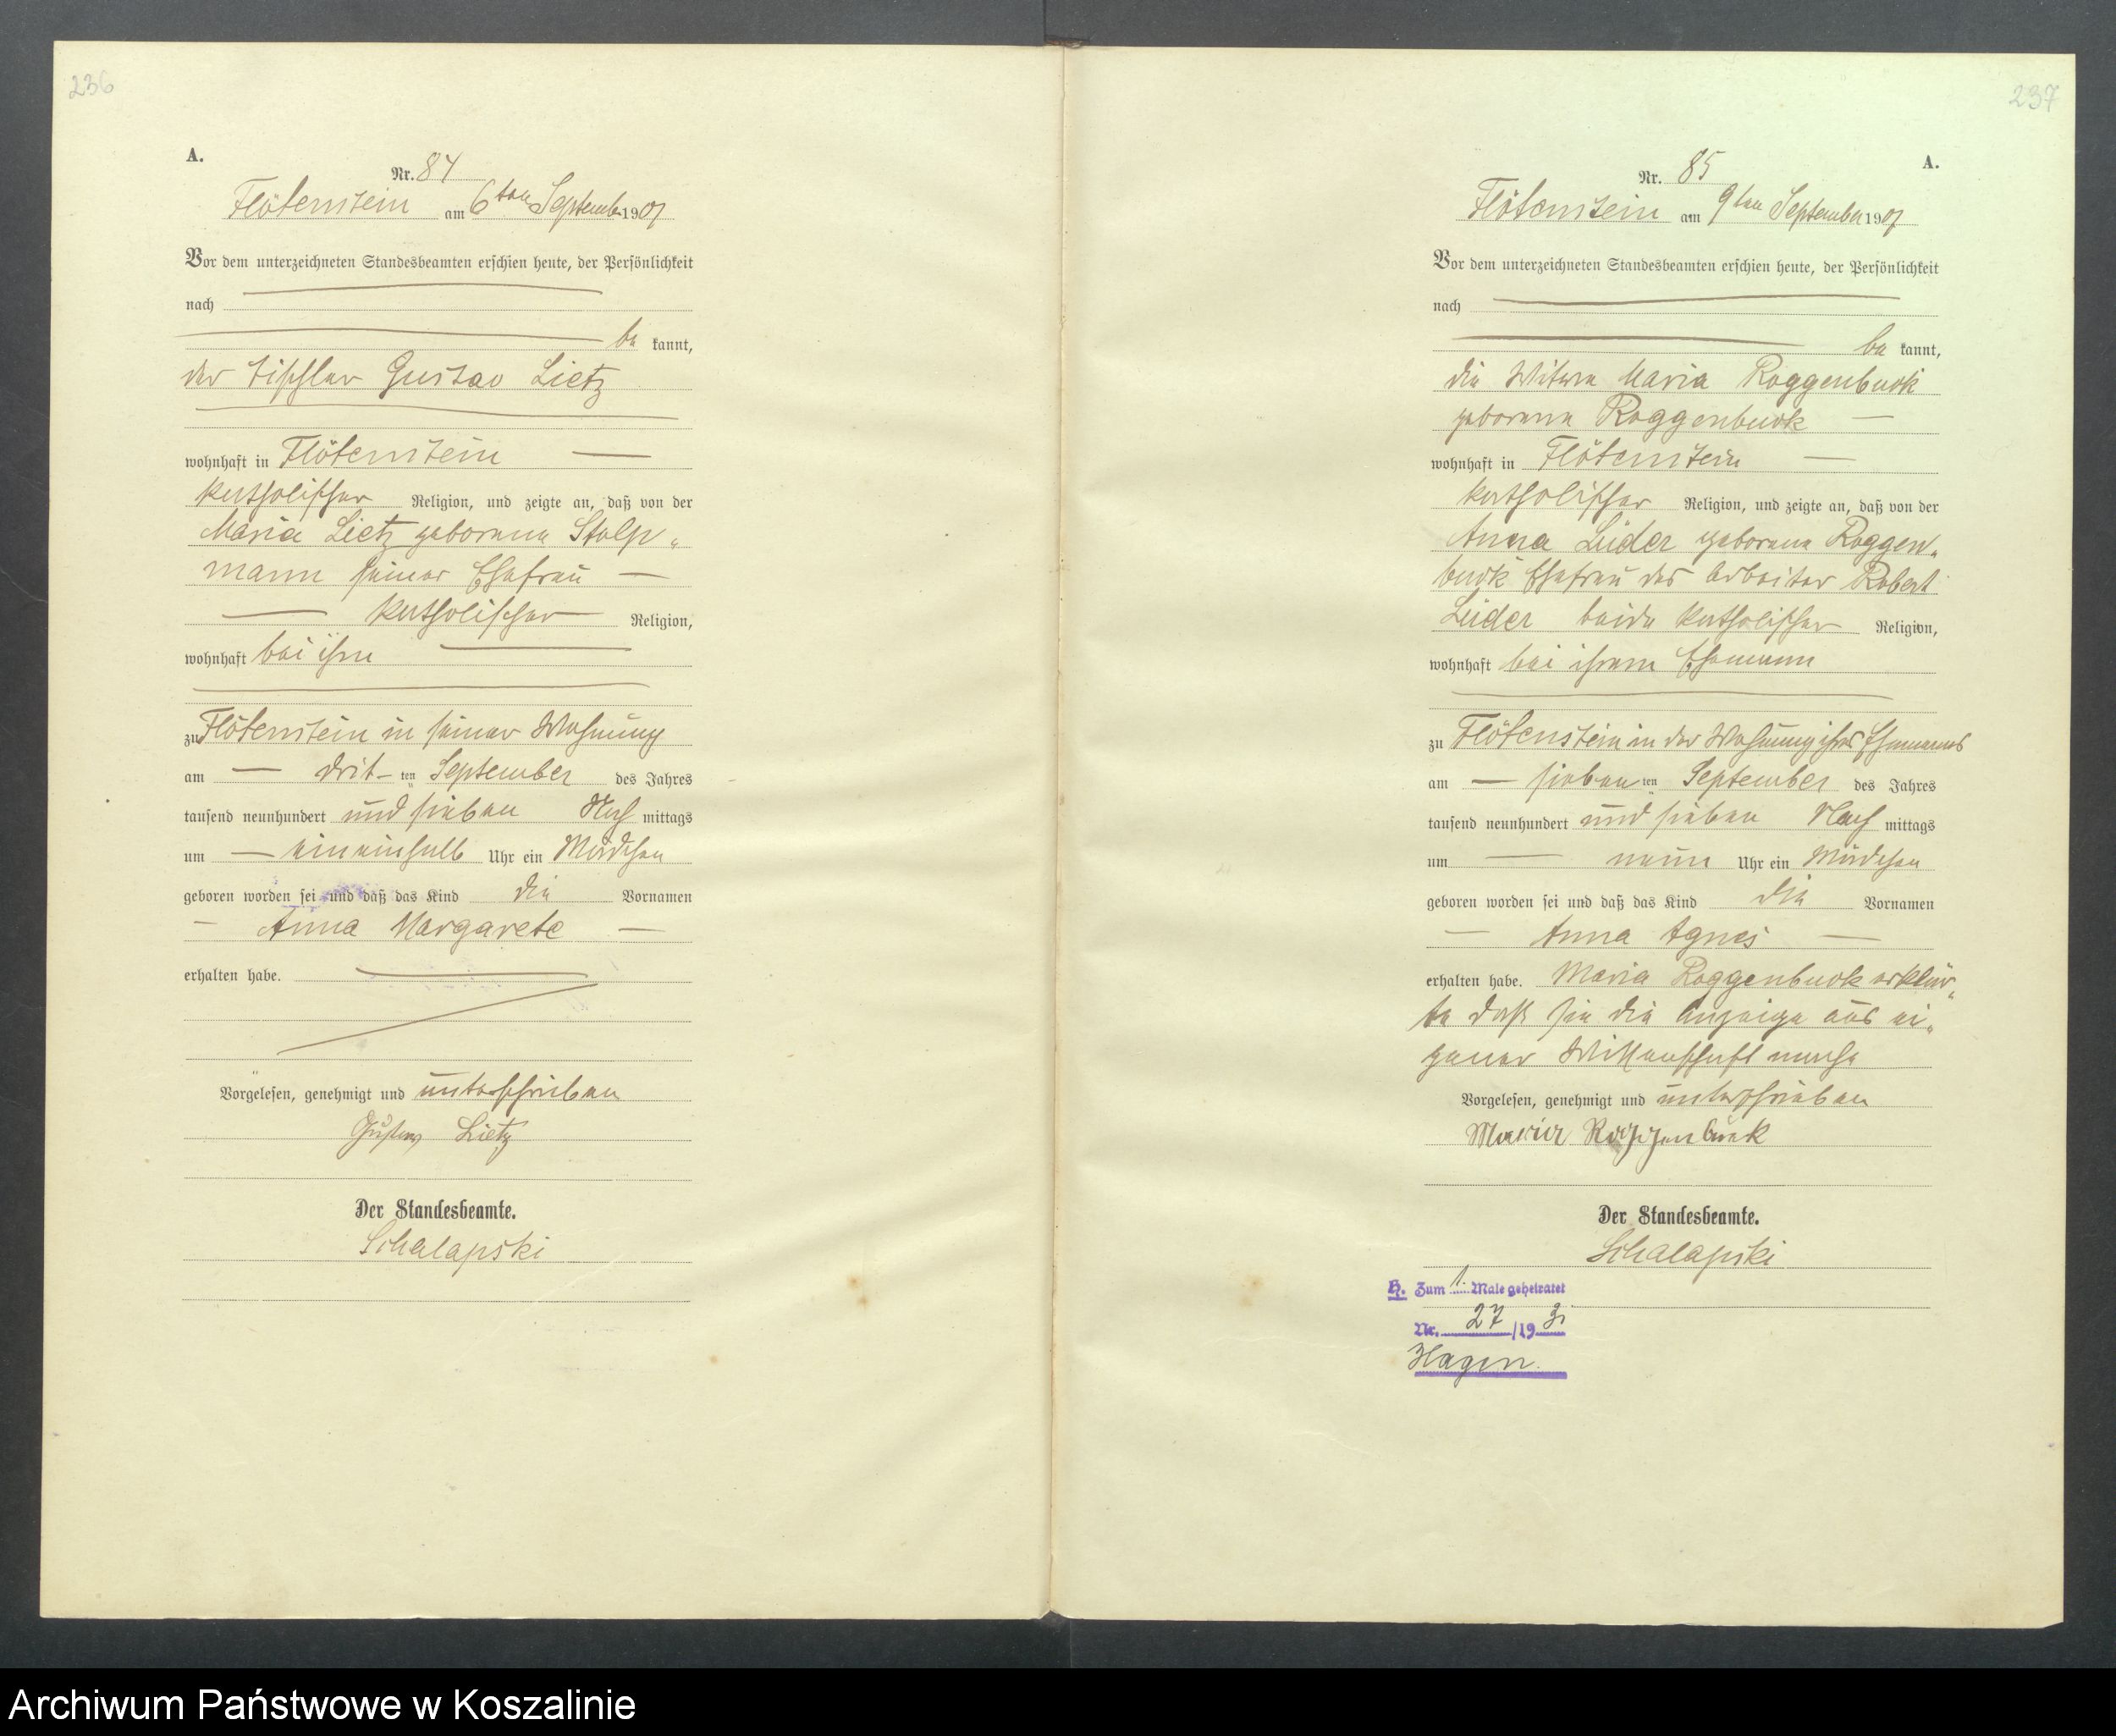 236
A.
Nr. 84
Flötenstein am 6ten September 1907
Vor dem unterzeichneten Standesbeamten erschien heute, der Persönlichkeit
nach
be kannt,
der Tischler Gustav Lietz
wohnhaft in Flötenstein
katholischer Religion, und zeigte an, daß von der
Maria Lietz geborene Stolp„
mann seiner Ehefrau
katholischer Religion,
wohnhaft bei ihm
zu Flötenstein in seiner Wohnung
am drit-ten September des Jahres
tausend neunhundert und sieben Nach mittags
um ein einhalb Uhr ein Mädchen
geboren worden sei und daß das Kind die Vornamen
Anna Margarete
erhalten habe.
Vorgelesen, genehmigt und unterschrieben
Gustav Lietz
Der Standesbeamte.
Schalapski
237
A.
Nr. 85
Flötenstein am 9ten September 1907
Vor dem unterzeichneten Standesbeamten erschien heute, der Persönlichkeit
nach
be kannt,
die Witwe Maria Roggenbuck
geborene Roggenbuck
wohnhaft in Flötenstein
katholischer Religion, und zeigte an, daß von der
Anna Lüder geborene Roggen„
buck Ehefrau des Arbeiter Robert
Lüder beide katholischer Religion,
wohnhaft bei ihrem Ehemann
zu Flötenstein in der Wohnung ihres Ehemannes
am siebenten September des Jahres
tausend neunhundert und sieben Nach mittags
um neun Uhr ein Mädchen
geboren worden sei und daß das Kind die Vornamen
Anna Agnes
erhalten habe. Maria Roggenbuck erklär„
te daß sie die Anzeige aus ei„
gener Wissenschaft mache
Vorgelesen, genehmigt und unterschrieben
Maria Roggenbuck
Der Standesbeamte.
Schalapski
H. Zum 1. Male geheiratet
Nr. 27 /19
Hagen.
Archiwum Państwowe w Koszalinie